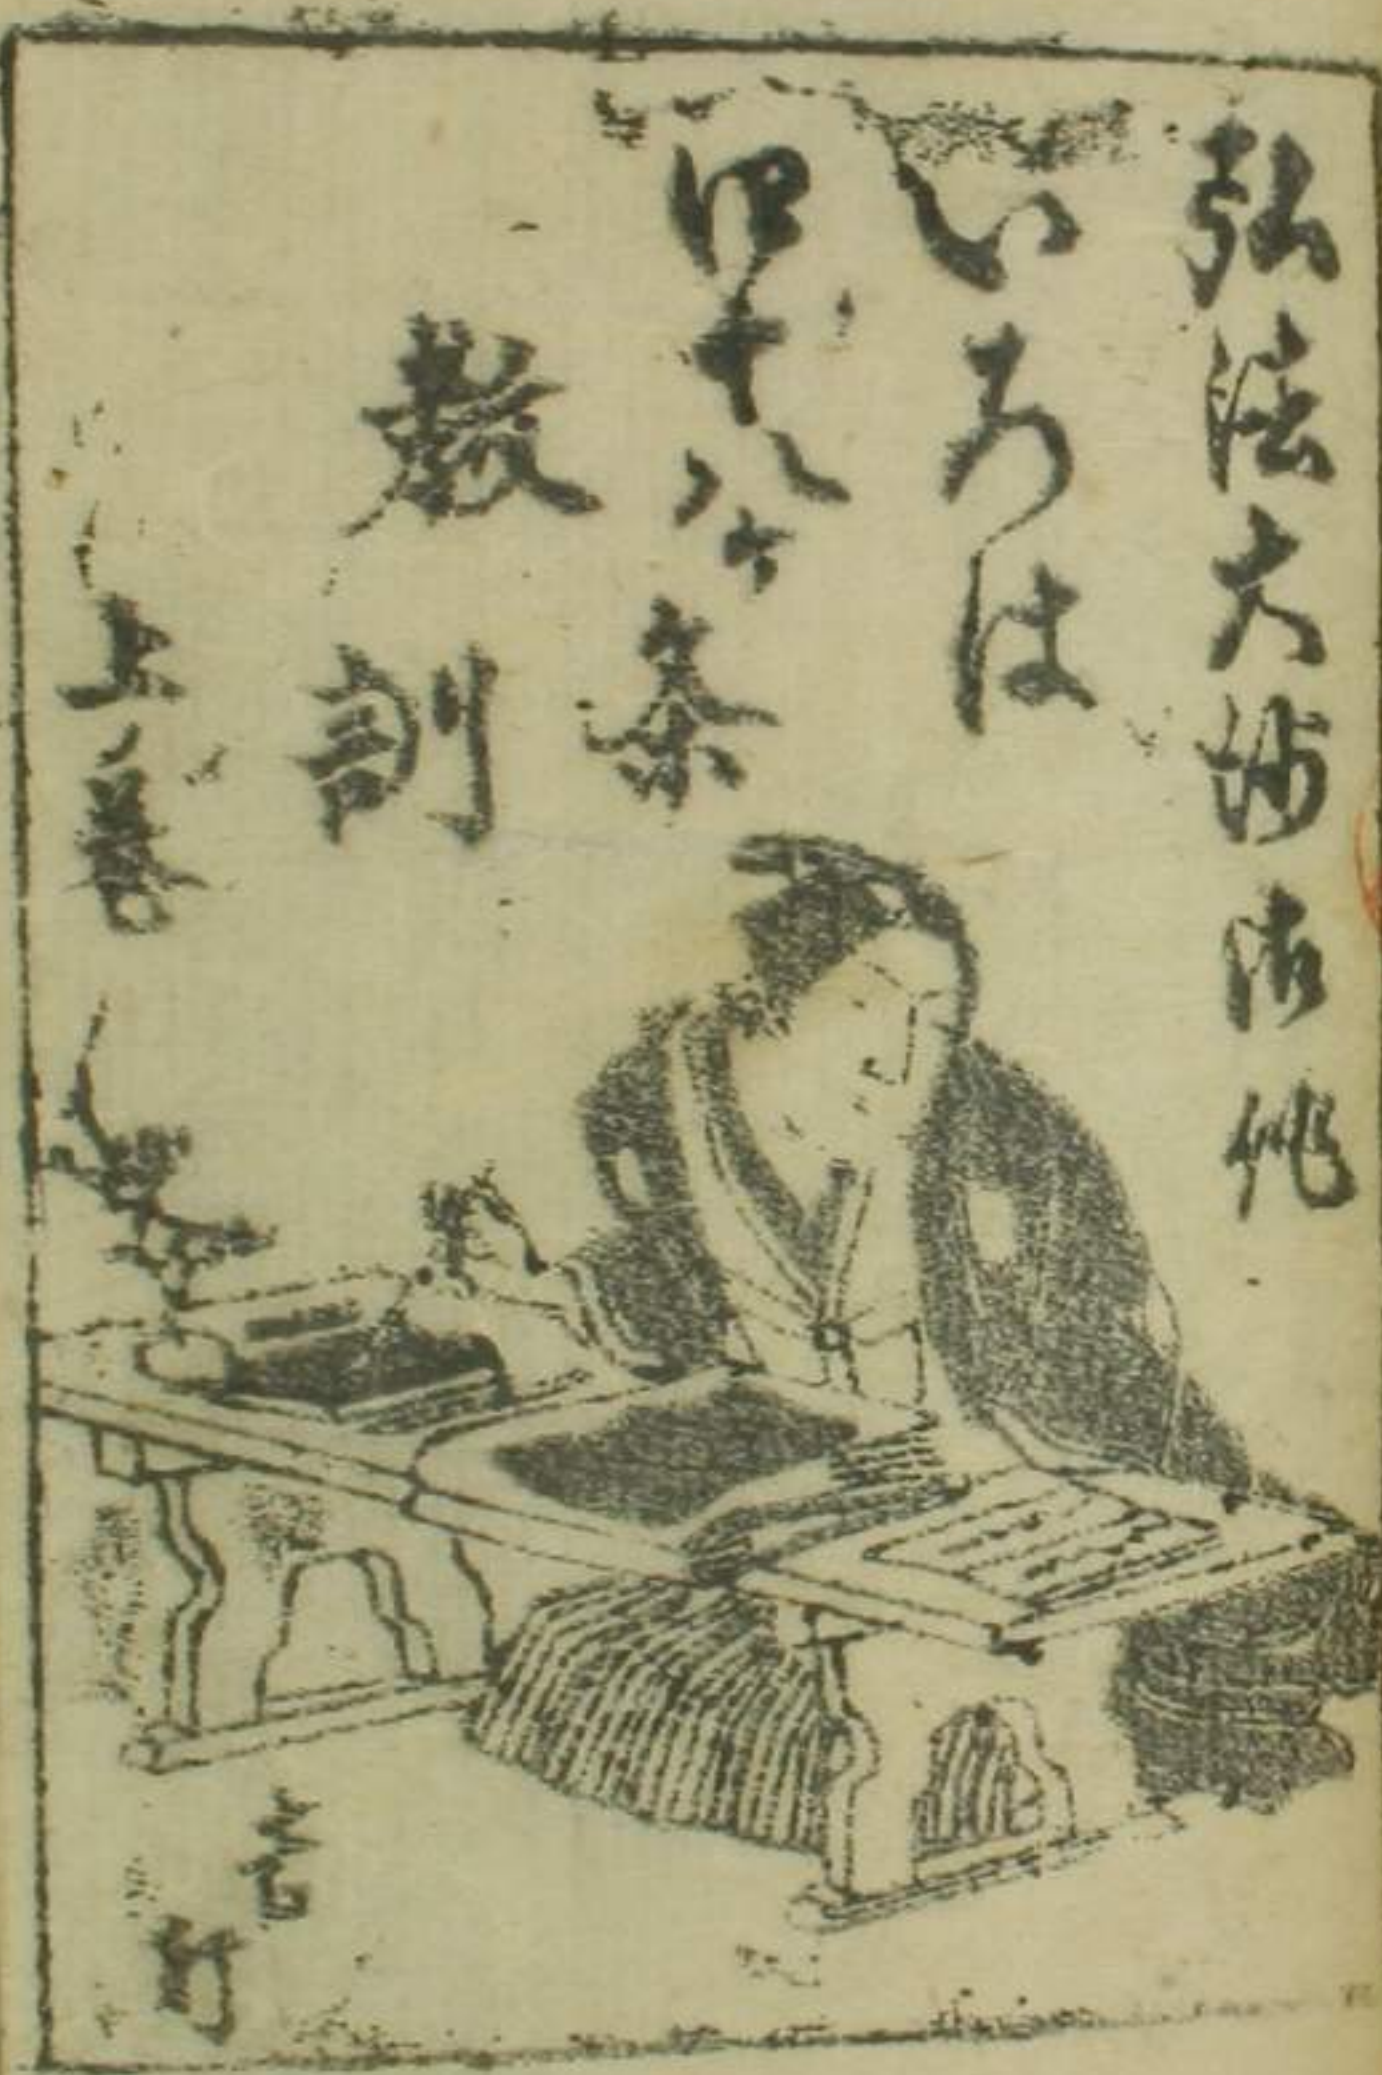 弘法大師御作
いろは
四十八ヶ条
教訓
上巻